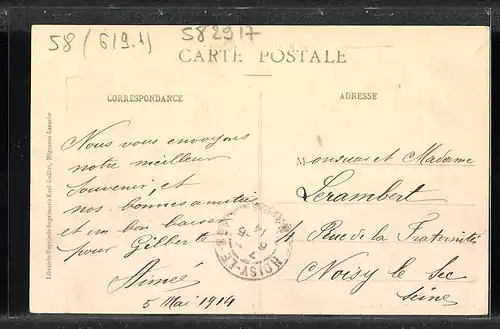 58 (619.1)
582917
CARTE POSTALE
CORRESPONDANCE
ADRESSE
Nous vous envoyons
notre meilleur
souvenir, et
nos bonnes amitiés
et un bon baiser
pour Gilberte
Aimée
5 Mai 1914
Monsieur et Madame
Lerambert
4 Rue de la Fraternité
Noisy le Sec
Seine
NOISY-LE-SEC
Librairie-Papeterie-Imprimerie